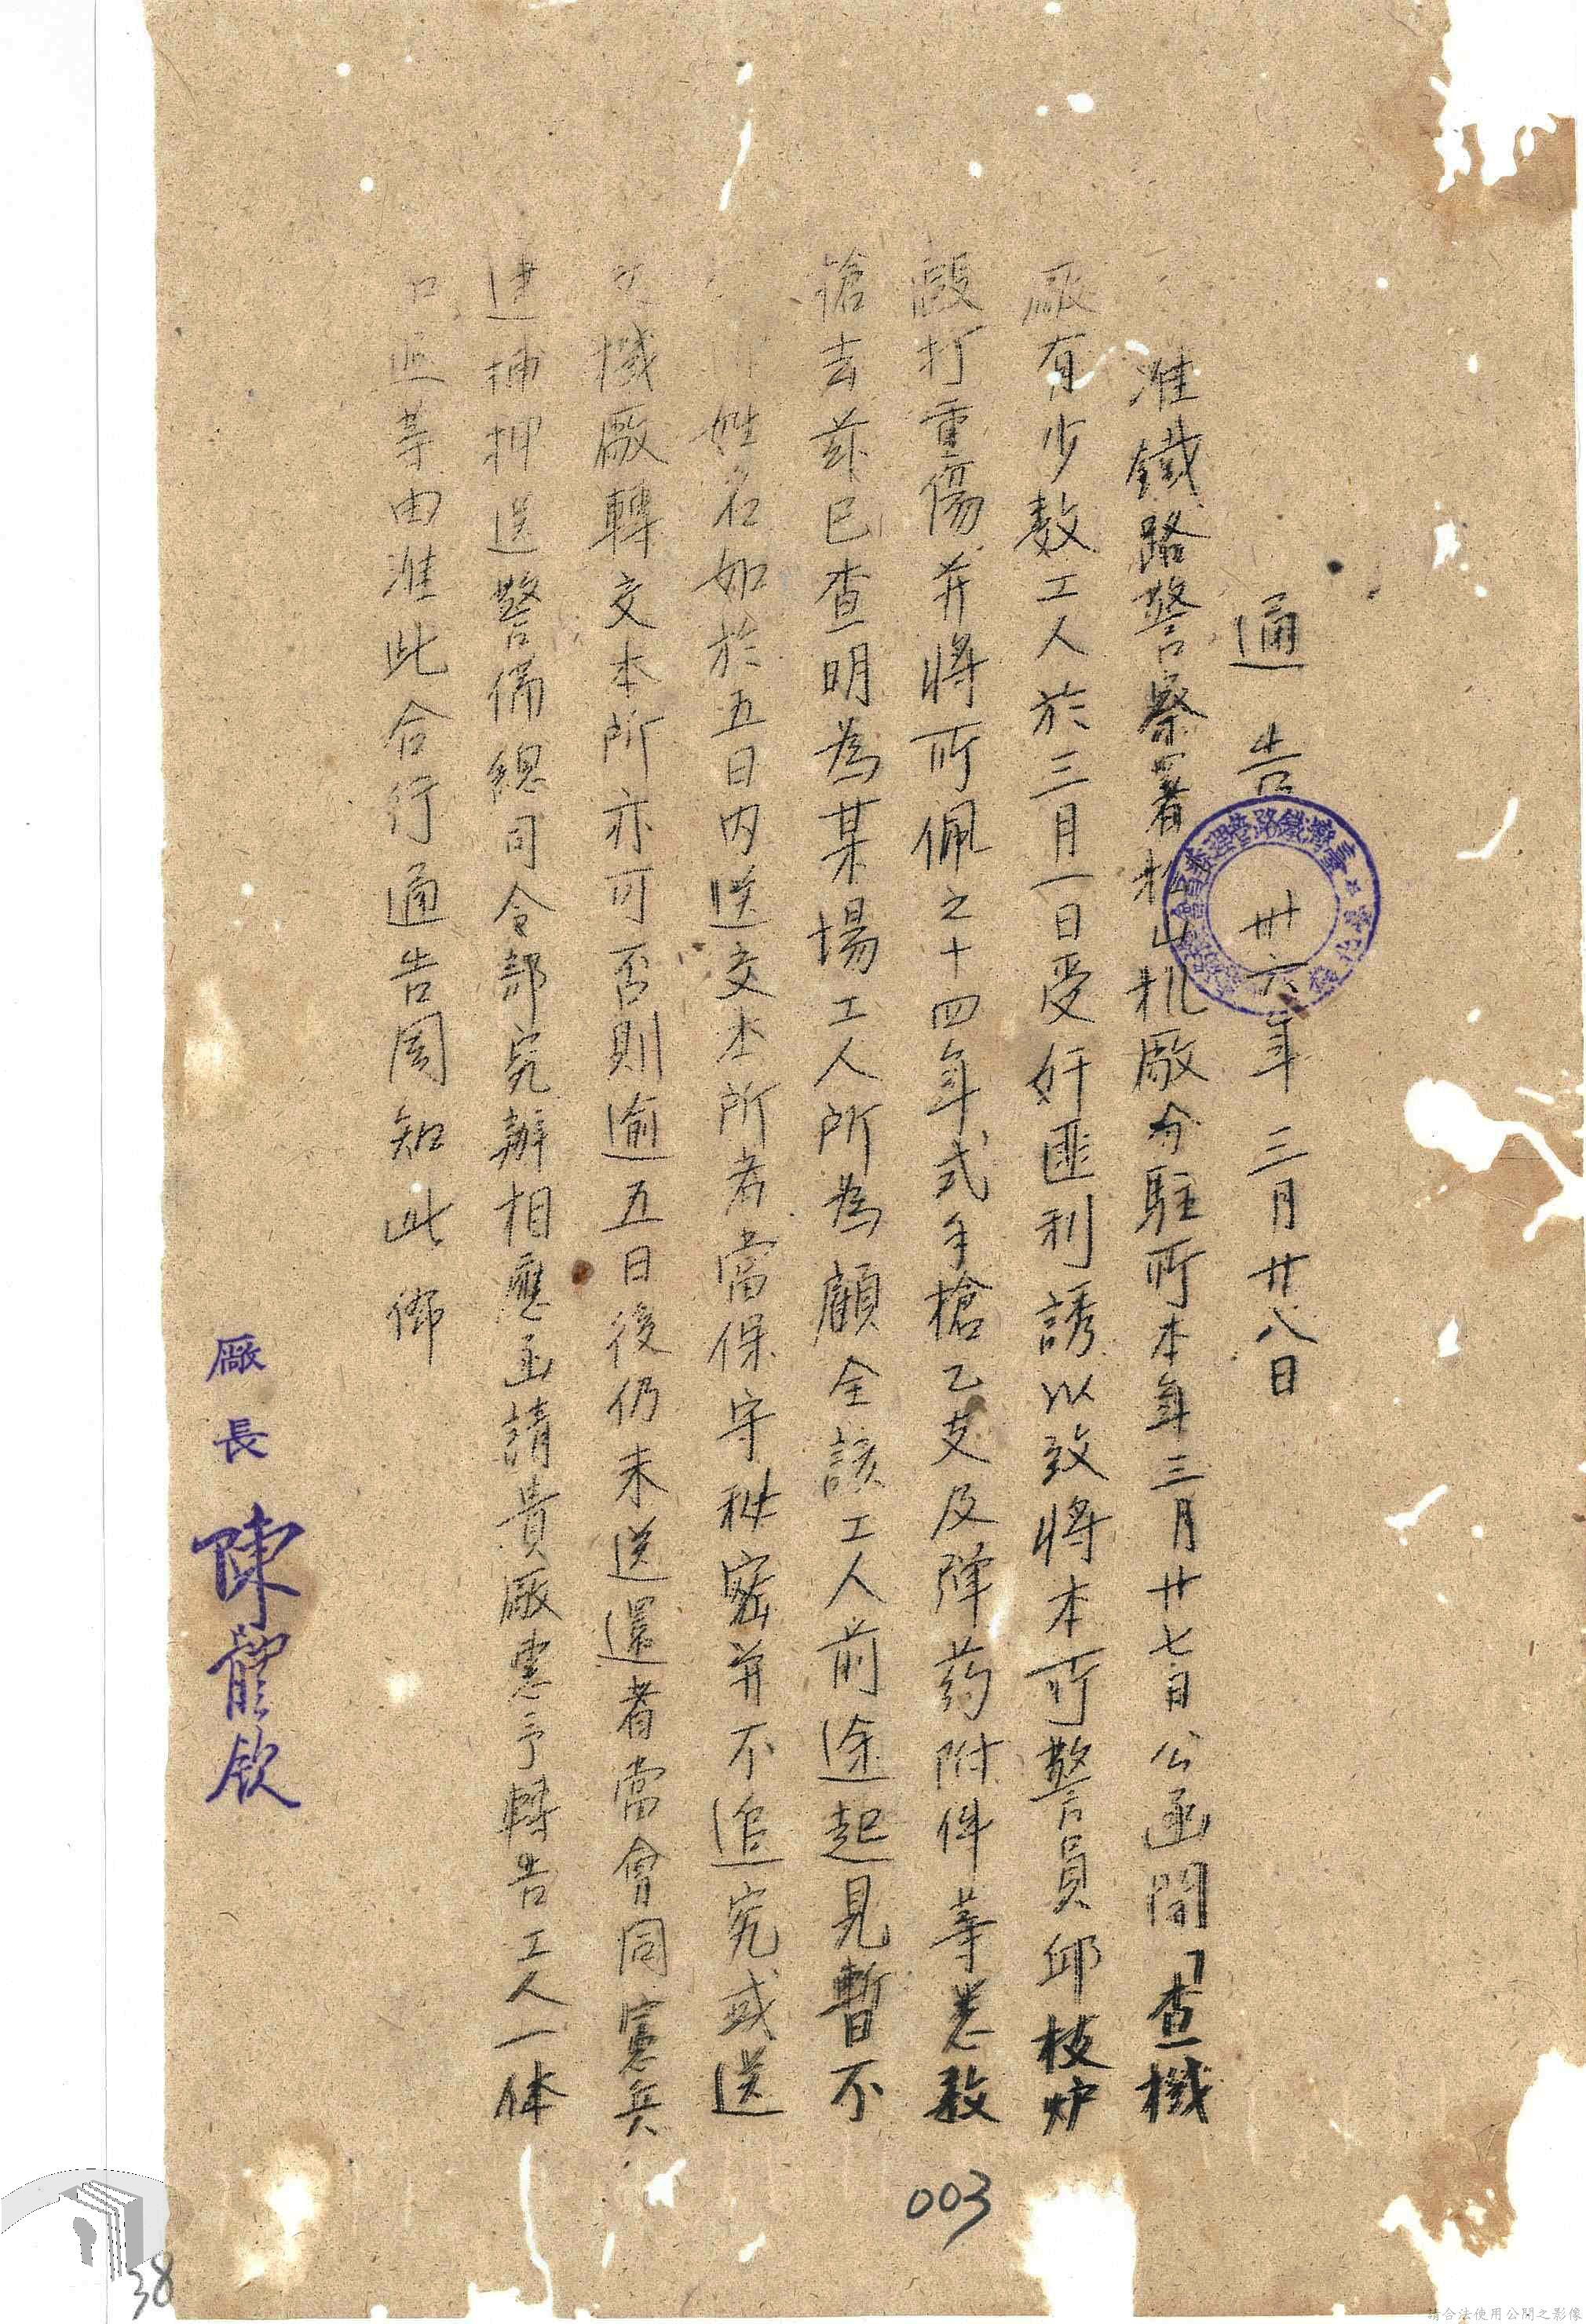 通告 卅六年三月廿八日
准鐵路警察署松山机廠分駐所本年三月廿七日公函開「查機
廠有少数工人於三月一日受奸匪利誘以致將本所警員邱枝炉
毆打重傷并將所佩之十四年式手槍乙支及弹药附件等悉数
搶去茲已查明為某場工人所為顧全該工人前途起見暫不
姓名如於五日内送交本所者當保守秘密并不追究或送
機廠轉交本所亦可否則逾五日後仍未送還者當會同憲兵
逮捕押送警備總司令部究辦相應函請貴廠惠予轉告工人一体
等由准此合行通告周知此佈
廠長 陳龍欽
003
38
請合法使用公開之影像